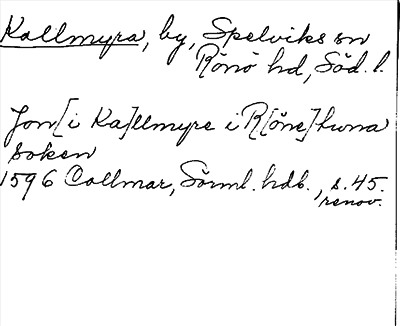 Kallmyra, by, Spelviks sn
Rönö hd, Söd. l.
Jon [i Ka]llmyre i R[öne]tuna
soken
1596 Collmar, Sörml. hdb., s. 45.
renov.